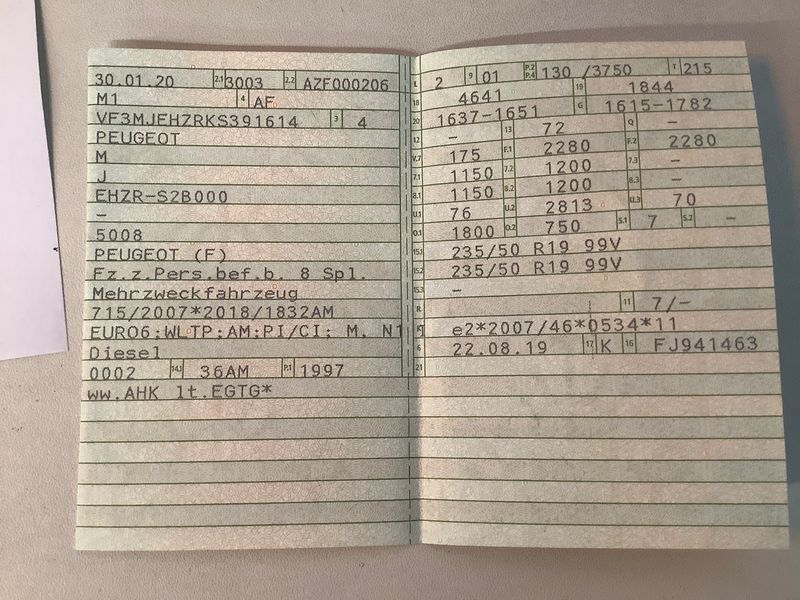 30.01.20 2.1 3003 2.2 AZF000206
M1 4 AF
VF3MJEHZRKS391614 3 4
PEUGEOT
M
J
EHZR-S2B000
–
5008
PEUGEOT (F)
Fz.z.Pers.bef.b. 8 Spl.
Mehrzweckfahrzeug
715/2007*2018/1832AM
EURO6;WLTP;AM;PI/CI; M, N1
Diesel
0002 14.1 36AM P.1 1997
ww.AHK lt.EGTG*
L 2 9 01 P.2 P.4 130 /3750 T 215
18 4641 19 1844
20 1637-1651 G 1615-1782
12 – 13 72 Q –
V.7 175 F.1 2280 F.2 2280
7.1 1150 7.2 1200 7.3 –
8.1 1150 8.2 1200 8.3 –
U.1 76 U.2 2813 U.3 70
O.1 1800 O.2 750 S.1 7 S.2 –
15.1 235/50 R19 99V
15.2 235/50 R19 99V
15.3 –
R 11 7/–
K e2*2007/46*0534*11
6 22.08.19 17 K 16 FJ941463
21